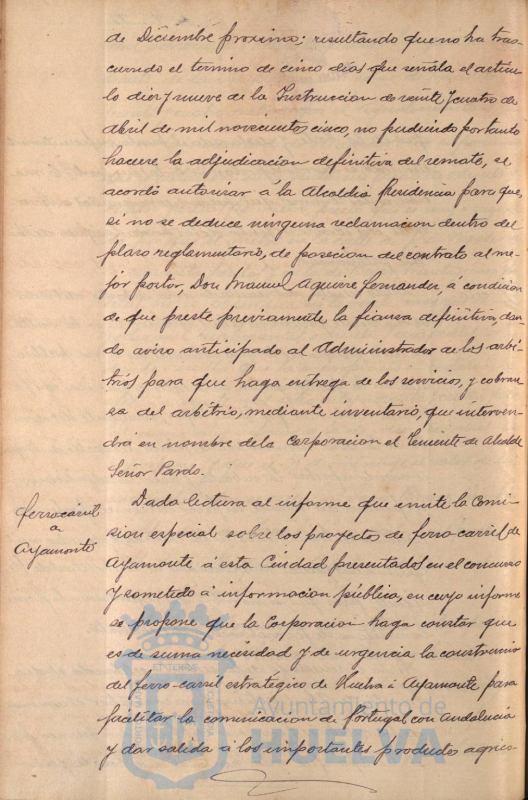 de Diciembre proximo; resultando que no ha tras-
currido el termino de cinco dias que señala el articu-
lo diez y nueve de la Instruccion de veinte y cuatro de
abril de mil novecientos cinco, no pudiendo por tanto
hacerse la adjudicacion definitiva del remate, se
acordó autorizar á la Alcaldia Presidencia para que,
si no se deduce ninguna reclamacion dentro del
plazo reglamentario, de posecion del contrato al me-
jor postor, Don Manuel Aguirre Fernandez, á condicion
de que preste previamente la fianza definitiva, dan-
do aviso anticipado al Administrador de los arbi-
trios para que haga entrega de los servicios, y cobran-
sa del arbitrio, mediante inventario, que interven-
drá en nombre de la Corporacion el Teniente de Alcalde
Señor Pardo.
ferro-carril
a
Ayamonte
Dada lectura al informe que emite la Comi-
sion especial sobre los proyectos de ferro-carril de
Ayamonte á esta Ciudad presentados en el concurso
y sometido á informacion pública, en cuyo informe
se propone que la Corporacion haga constar que
es de suma necesidad y de urgencia la construccion
del ferro-carril estratégico de Huelva á Ayamonte para
facilitar la comunicacion de Portugal con Andalucia
y dar salida á los importantes productos agrico-
Ayuntamiento de
HUELVA